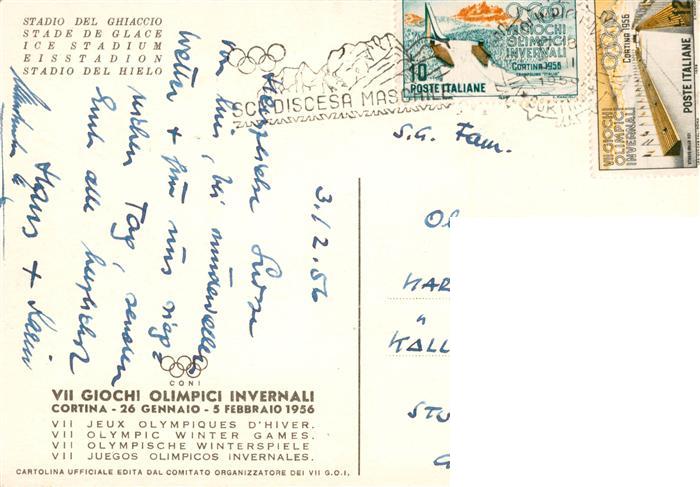 STADIO DEL GHIACCIO
STADE DE GLACE
ICE STADIUM
EISSTADION
STADIO DEL HIELO
VII GIOCHI
OLIMPICI
INVERNALI
CORTINA 1956
TRAMPOLINO "ITALIA"
10 POSTE ITALIANE
CORTINA 1956
VII GIOCHI
OLIMPICI
INVERNALI
12
POSTE ITALIANE
SCI DISCESA MASCHILE
S.G. Fam.
3./2.56
Herzliche Grüsse
von hier, bei wundervollem
Wetter + für uns sieg-
reichen Tag, senden
Euch alle herzlichst
Hans + Karin
CONI
VII GIOCHI OLIMPICI INVERNALI
CORTINA - 26 GENNAIO - 5 FEBBRAIO 1956
VII JEUX OLYMPIQUES D'HIVER.
VII OLYMPIC WINTER GAMES.
VII OLYMPISCHE WINTERSPIELE
VII JUEGOS OLIMPICOS INVERNALES.
CARTOLINA UFFICIALE EDITA DAL COMITATO ORGANIZZATORE DEI VII G.O.I.